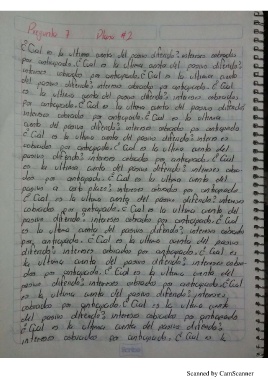 Pregunta 7 Plana #2
¿Cual es la ultima cuenta del pasivo diferido?: intereses cobrados
por anticipado. ¿Cual es la ultima cuenta del pasivo diferido?:
intereses cobrados por anticipado. ¿Cual es la ultima cuenta
del pasivo diferido?: intereses cobrados por anticipado. ¿Cual
es la ultima cuenta del pasivo diferido?: intereses cobrados
por anticipado. ¿Cual es la ultima cuenta del pasivo diferido?
intereses cobrados por anticipado. ¿Cual es la ultima
cuenta del pasivo diferido?: intereses cobrados por anticipado
¿Cual es la ultima cuenta del pasivo diferido?: intereses
cobrados por anticipado. ¿Cual es la ultima cuenta del
pasivo diferido?: intereses cobrados por anticipado. ¿Cual
es la ultima cuenta del pasivo diferido?: intereses cobra-
dos por anticipado. ¿Cual es la ultima cuenta del
pasivo a plazo?: intereses cobrados por anticipado.
¿Cual es la ultima cuenta del pasivo diferido?: intereses
cobrados por anticipado. ¿Cual es la ultima cuenta del
pasivo diferido?: intereses cobrados por anticipado. ¿Cual
es la ultima cuenta del pasivo diferido?: intereses cobrados
por anticipado. ¿Cual es la ultima cuenta del pasivo
diferido?: intereses cobrados por anticipado. ¿Cual es
la ultima cuenta del pasivo diferido?: intereses cobra-
dos por anticipado. ¿Cual es la ultima cuenta del
pasivo diferido?: intereses cobrados por anticipado. ¿Cual
es la ultima cuenta del pasivo diferido?: intereses
cobrados por anticipado. ¿Cual es la ultima cuenta
del pasivo diferido?: intereses cobrados por anticipado
¿Cual es la ultima cuenta del pasivo diferido?:
intereses cobrados por anticipado. ¿Cual es la
Scanned by CamScanner